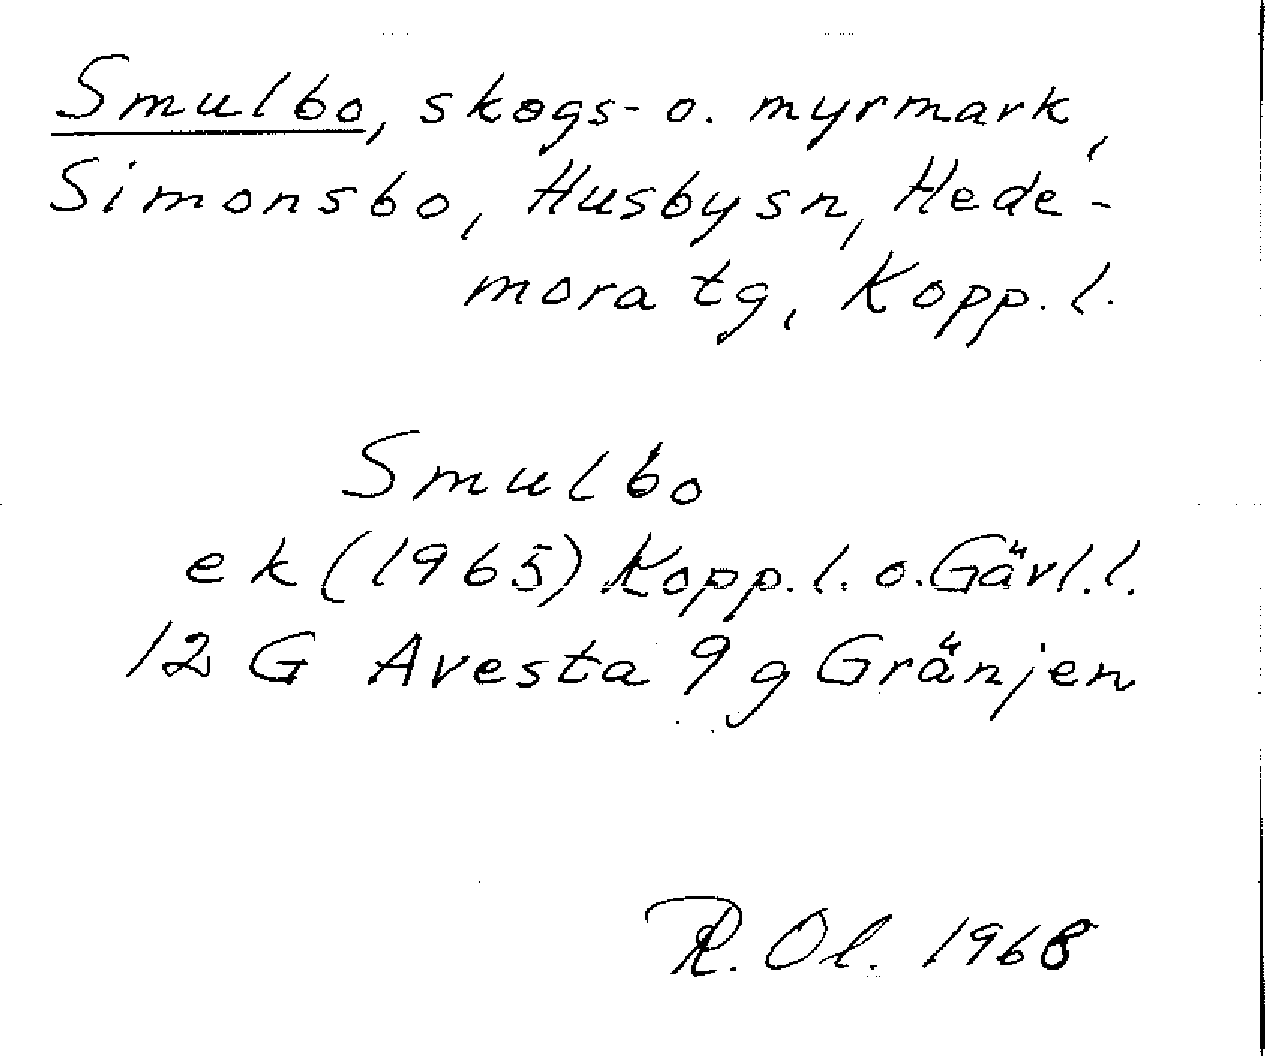 Smulbo, skogs- o. myrmark,
Simonsbo, Husby sn, Hede-
mora tg, Kopp. l.
Smulbo
ek (1965) Kopp. l. o. Gävl. l.
12 G Avesta 9 g Gränjen
R. Ol. 1968